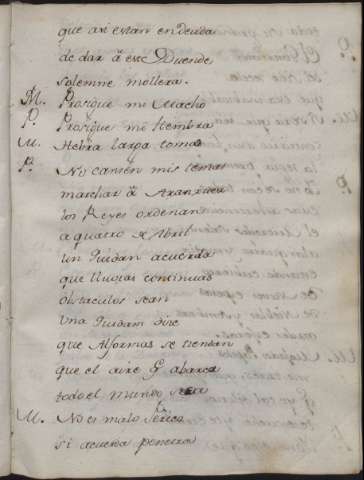 que asi estan en deuda
de dar â este Duende
solemne mollera.
M. Prosigue mi Macho
P. Prosigue mi Hembra
M. Hebra larga tomas
P. No cansen mis temas
marchar â Aranxuez
los Reyes ordenan
a quatro de Abril
un Quidam acuerda
que lluvias continuas
obstaculos sean
una Quidam dice
que Alformas se tiendan
que el aire G. abarca
todo el mundo sera
M. No es malo
si acuerda penetra